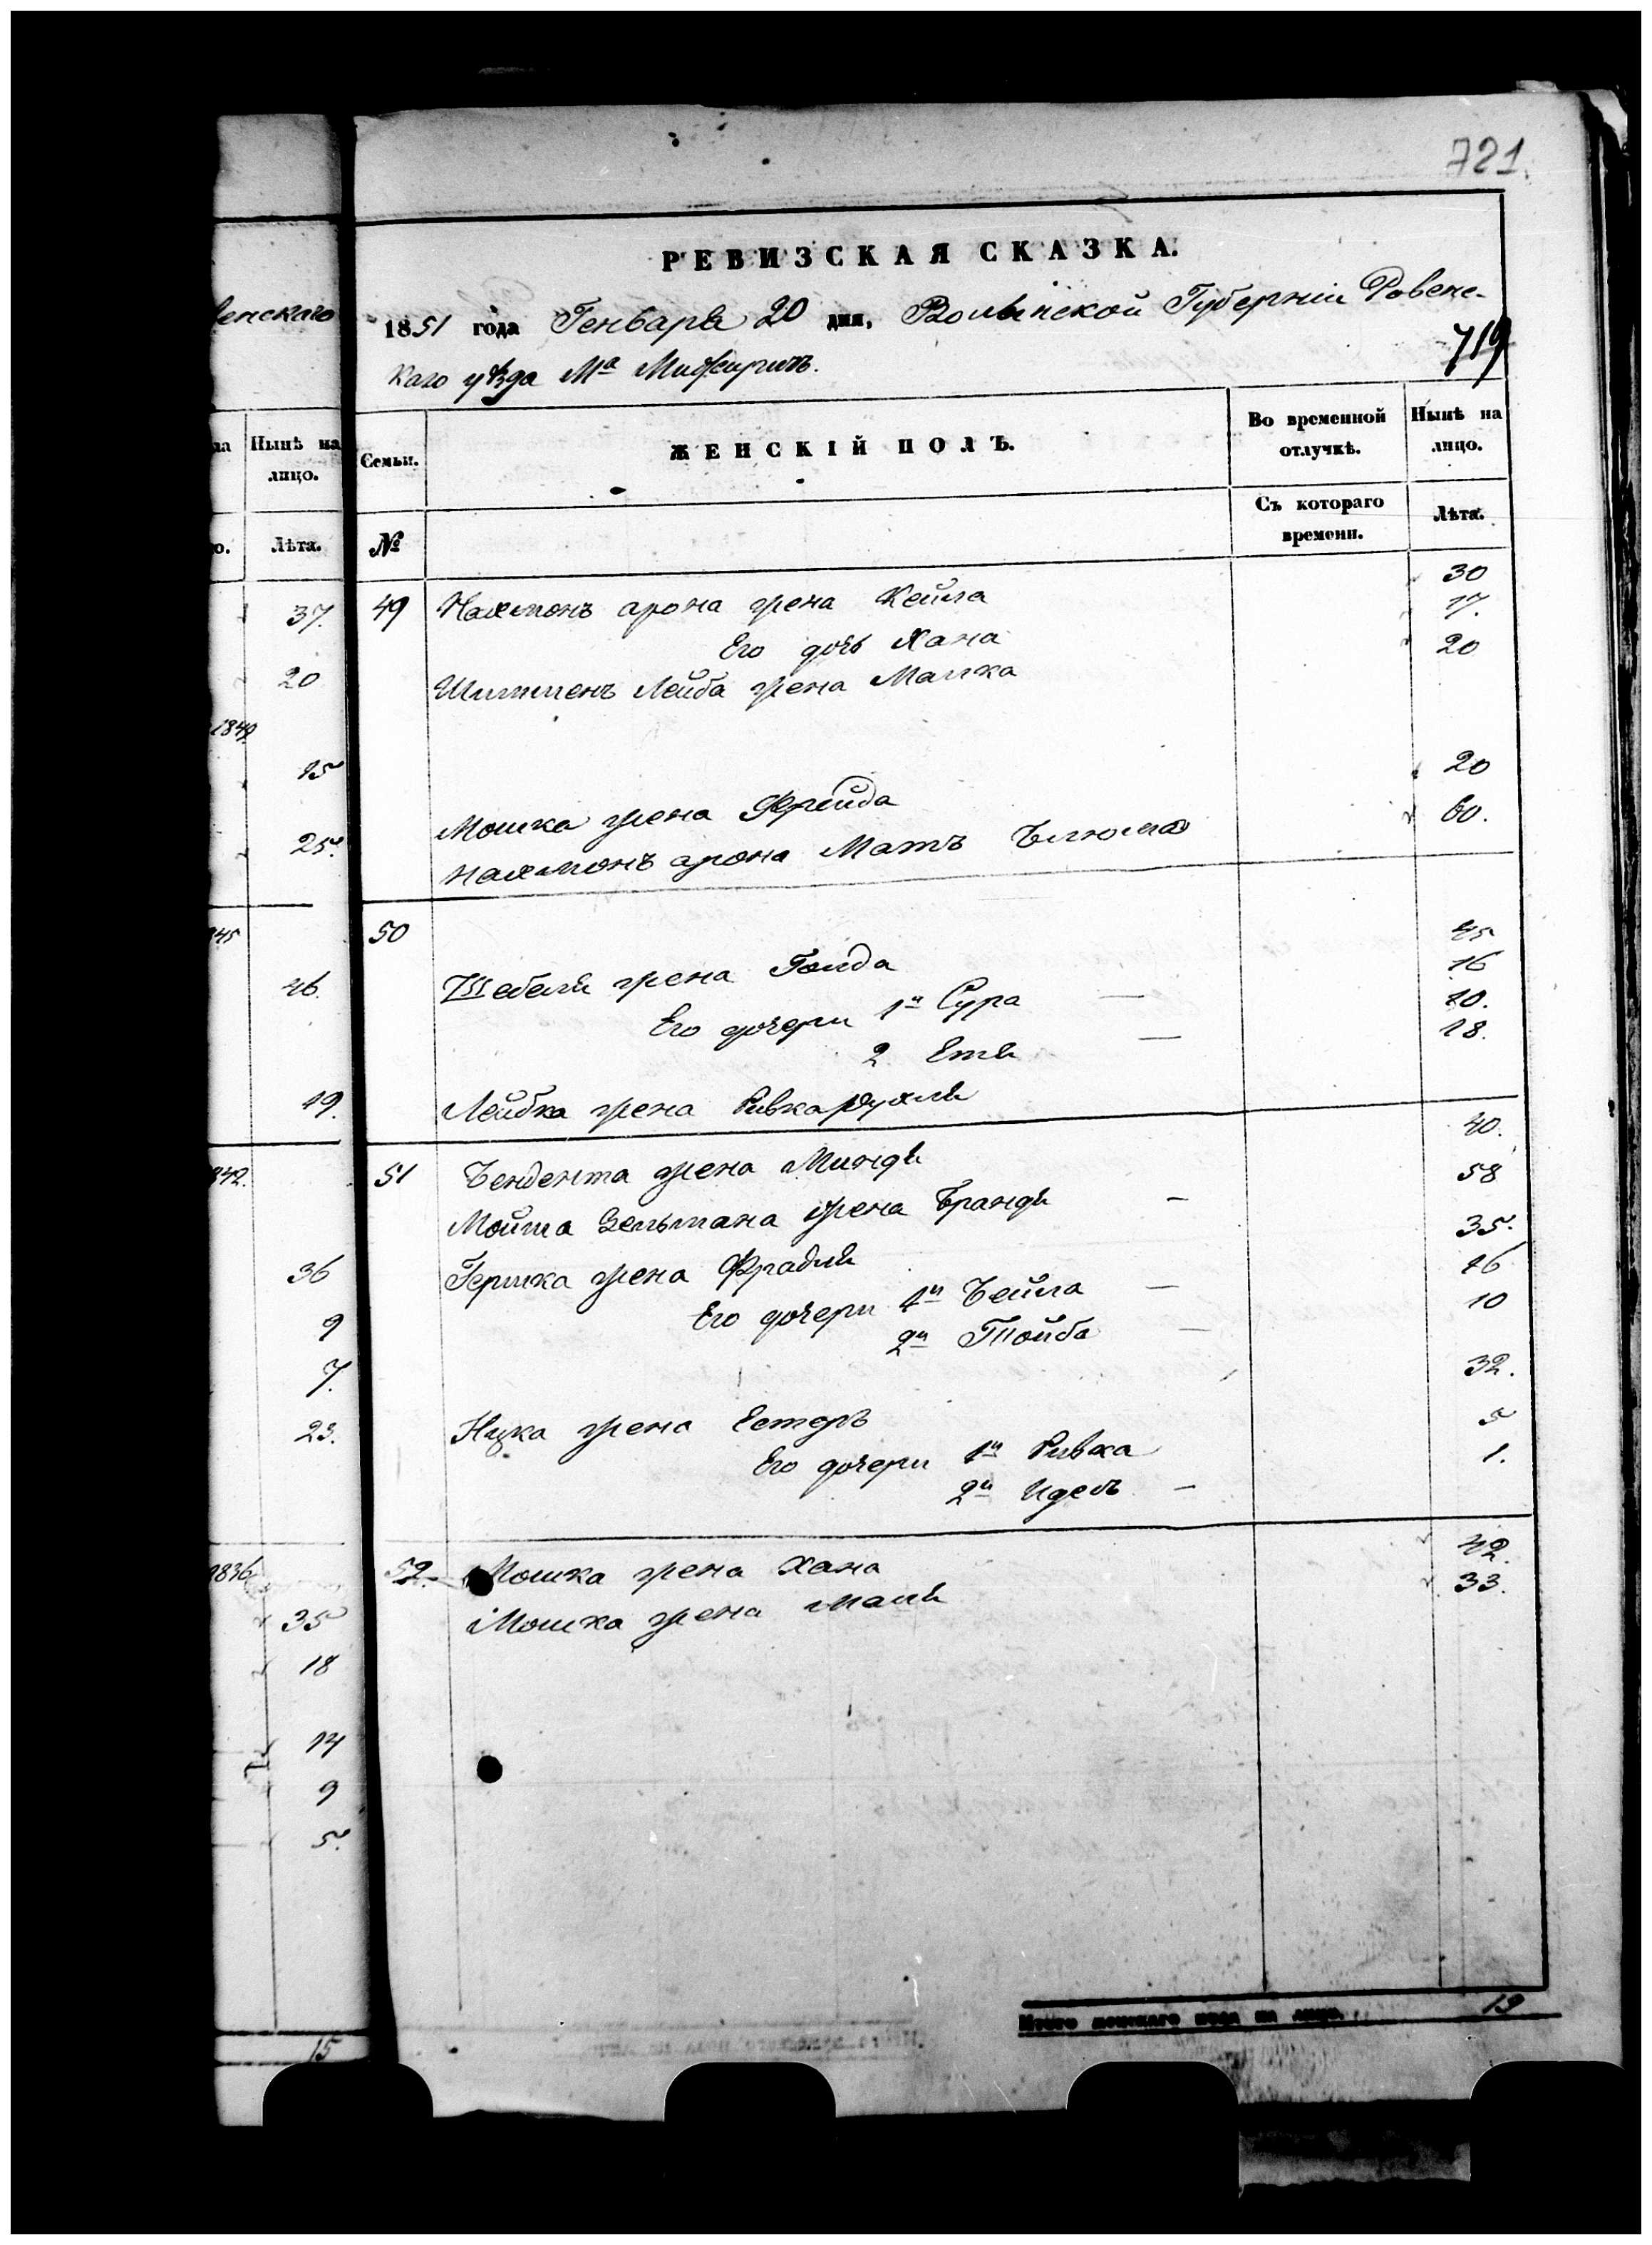 721.
РЕВИЗСКАЯ СКАЗКА.
1851 года Генваря 20 дня, Волынской Губерніи Ровенс-
каго уѣзда Мª Межирич.
719
енскаго
Нынѣ на
лицо.
Лѣта.
Семьи.
ЖЕНСКІЙ ПОЛЪ.
Во временной
отлучкѣ.
Нынѣ на
лицо.
№
Съ котораго
времени.
Лѣта.
37.
20
1849
15
25.
49 Нахмонъ арона жена Кейла 30
Его дочь Хана 17.
Лейба жена Малка 20
Мошка жена Фрейда 20
Нахмонъ арона Мать Блюма 60.
845
46.
19.
50
жена Голда 45
Его дочери 1я Сура — 16
2 Етя — 10.
Лейбка жена Ривка Рухля 18.
842.
36
9
7.
23.
51 жена Миндя 40.
Зельмана жена Брандя — 58
Гершка жена Фрадля 35.
Его дочери 1я Бейла — 16
2я Тойба — 10
Ицка жена Естеръ 32.
Его дочери 1я Ривка 5
2я Идесъ — 1.
1836
35
18
14
9
5.
52. Мошка жена Хана 42.
Мошка жена Маля 33.
15
Итого женскаго пола на лицо. 19